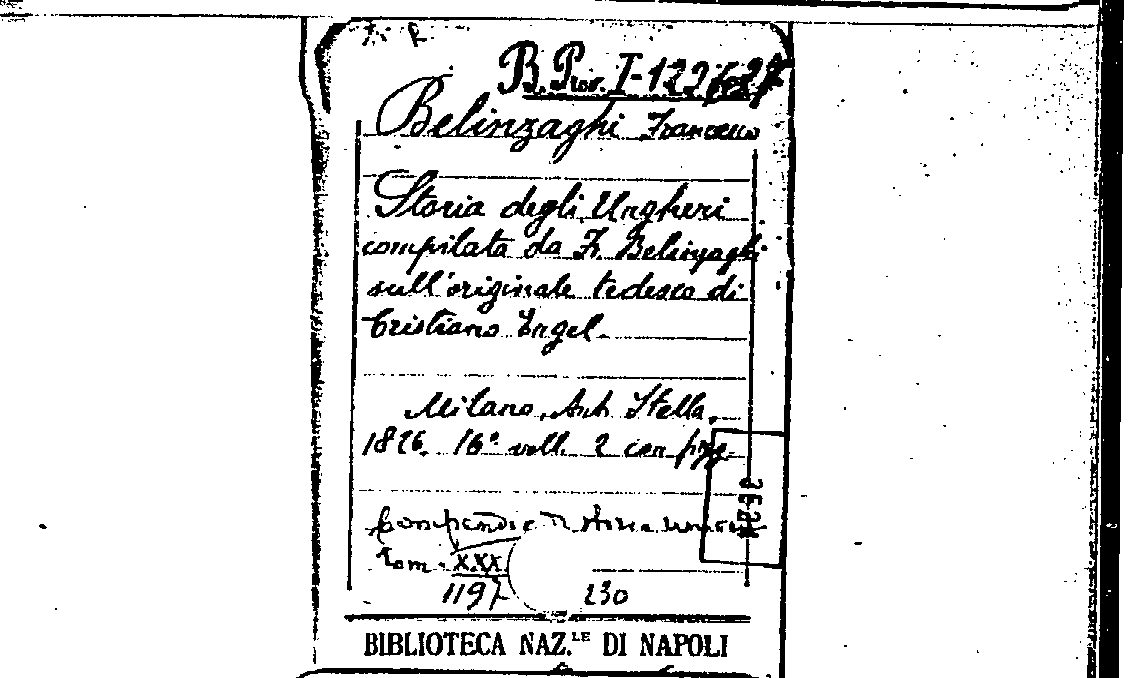 B. Prov. I-122
Belinzaghi Francesco
Storia degli Ungheri
compilata da F. Belinzaghi
sull'originale tedesco di
Cristiano Engel.
Milano, Ant. Stella.
1826. 16° voll. 2 con
Compendio storia
tom. XXX
1197 230
BIBLIOTECA NAZ.LE DI NAPOLI